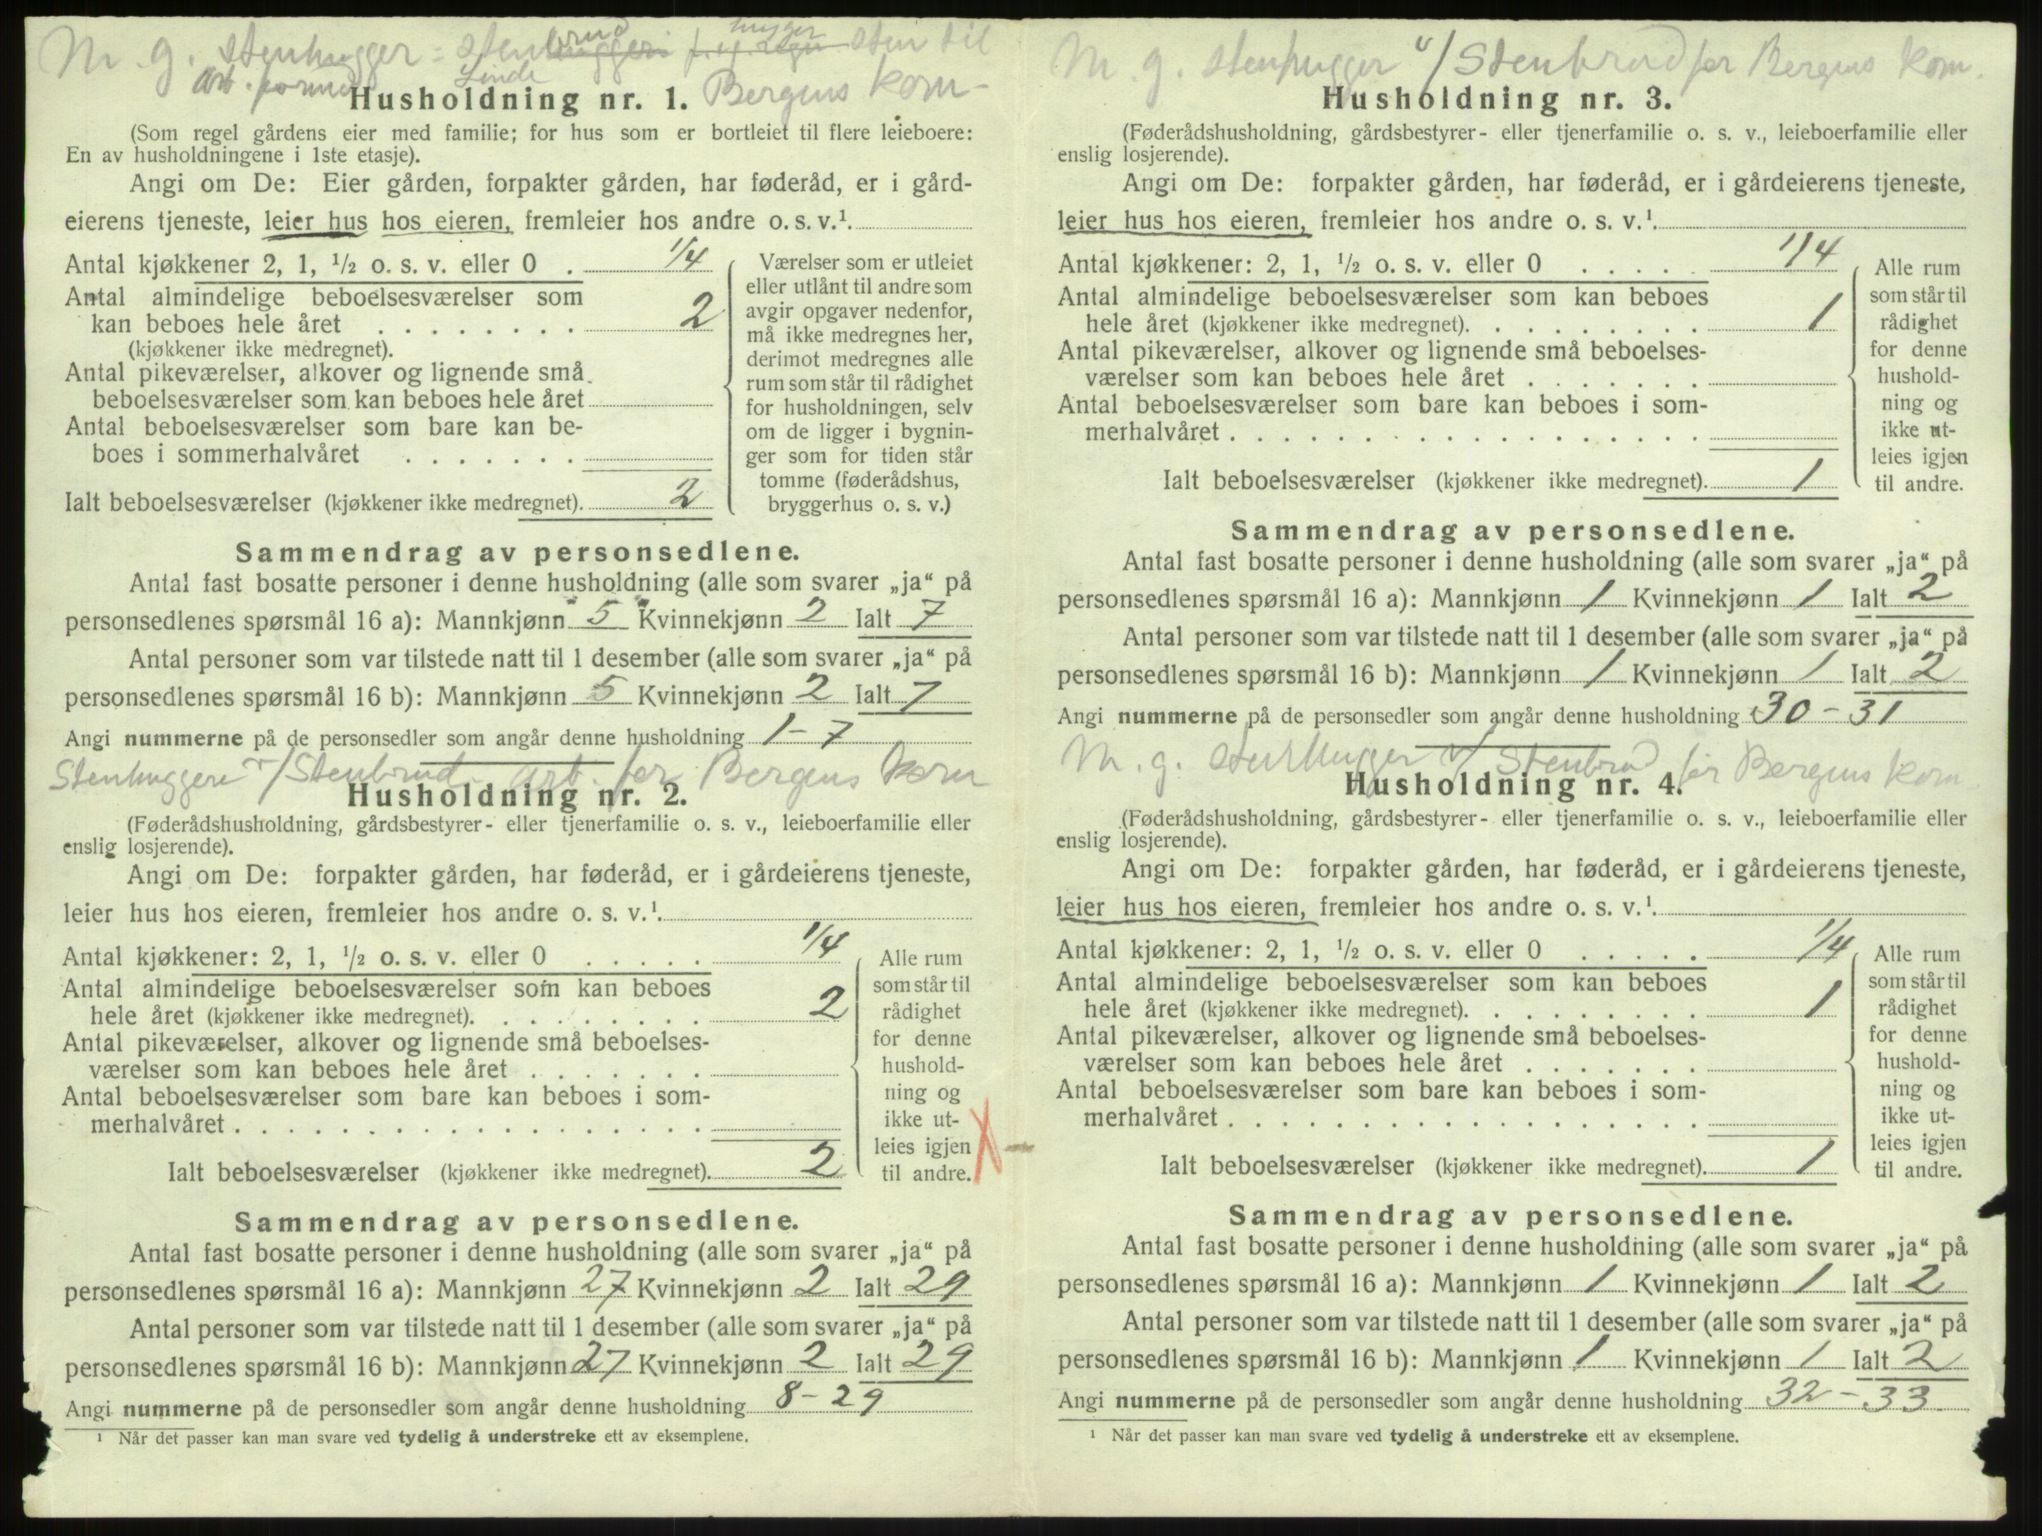 M. g. stenhugger = stenbrud hugger sten til
arb. formand Linde Bergens kom-
Husholdning nr. 1.
(Som regel gårdens eier med familie; for hus som er bortleiet til flere leieboere:
En av husholdningene i 1ste etasje).
Angi om De: Eier gården, forpakter gården, har føderåd, er i gård-
eierens tjeneste, leier hus hos eieren, fremleier hos andre o. s. v.¹.
Antal kjøkkener 2, 1, ½ o. s. v. eller 0 . 1/4
Antal almindelige beboelsesværelser som
kan beboes hele året . . . . . . . . 2
(kjøkkener ikke medregnet).
Antal pikeværelser, alkover og lignende små
beboelsesværelser som kan beboes hele året
Antal beboelsesværelser som bare kan be-
boes i sommerhalvåret . . . . . . .
Ialt beboelsesværelser (kjøkkener ikke medregnet). 2
Værelser som er utleiet
eller utlånt til andre som
avgir opgaver nedenfor,
må ikke medregnes her,
derimot medregnes alle
rum som står til rådighet
for husholdningen, selv
om de ligger i bygnin-
ger som for tiden står
tomme (føderådshus,
bryggerhus o. s. v.)
Sammendrag av personsedlene.
Antal fast bosatte personer i denne husholdning (alle som svarer „ja“ på
personsedlenes spørsmål 16 a): Mannkjønn 5 Kvinnekjønn 2 Ialt 7
Antal personer som var tilstede natt til 1 desember (alle som svarer „ja“ på
personsedlenes spørsmål 16 b): Mannkjønn 5 Kvinnekjønn 2 Ialt 7
Angi nummerne på de personsedler som angår denne husholdning 1-7
Stenhuggere v/Stenbrud. arb. for Bergens kom
Husholdning nr. 2.
(Føderådshusholdning, gårdsbestyrer- eller tjenerfamilie o. s. v., leieboerfamilie eller
enslig losjerende).
Angi om De: forpakter gården, har føderåd, er i gårdeierens tjeneste,
leier hus hos eieren, fremleier hos andre o. s. v.¹.
Antal kjøkkener: 2, 1, ½ o. s. v. eller 0 . . . . . 1/4
Antal almindelige beboelsesværelser som kan beboes
hele året (kjøkkener ikke medregnet). . . . . . . . . 2
Antal pikeværelser, alkover og lignende små beboelses-
værelser som kan beboes hele året . . . . . . .
Antal beboelsesværelser som bare kan beboes i som-
merhalvåret . . . . . . . . . . . . . . . . . .
Ialt beboelsesværelser (kjøkkener ikke medregnet). 2
Alle rum
som står til
rådighet
for denne
hushold-
ning og
ikke ut-
leies igjen
til andre.
X
Sammendrag av personsedlene.
Antal fast bosatte personer i denne husholdning (alle som svarer „ja“ på
personsedlenes spørsmål 16 a): Mannkjønn 27 Kvinnekjønn 2 Ialt 29
Antal personer som var tilstede natt til 1 desember (alle som svarer „ja“ på
personsedlenes spørsmål 16 b): Mannkjønn 27 Kvinnekjønn 2 Ialt 29
Angi nummerne på de personsedler som angår denne husholdning 8-29
¹ Når det passer kan man svare ved tydelig å understreke ett av eksemplene.
M. g. stenhugger v/Stenbrud for Bergens kom.
Husholdning nr. 3.
(Føderådshusholdning, gårdsbestyrer- eller tjenerfamilie o. s. v., leieboerfamilie eller
enslig losjerende).
Angi om De: forpakter gården, har føderåd, er i gårdeierens tjeneste,
leier hus hos eieren, fremleier hos andre o. s. v.¹.
Antal kjøkkener: 2, 1, ½ o. s. v. eller 0 . . . . . 1/4
Antal almindelige beboelsesværelser som kan beboes
hele året (kjøkkener ikke medregnet). . . . . . . . . 1
Antal pikeværelser, alkover og lignende små beboelses-
værelser som kan beboes hele året . . . . . . .
Antal beboelsesværelser som bare kan beboes i som-
merhalvåret . . . . . . . . . . . . . . . . . .
Ialt beboelsesværelser (kjøkkener ikke medregnet). 1
Alle rum
som står til
rådighet
for denne
hushold-
ning og
ikke ut-
leies igjen
til andre.
Sammendrag av personsedlene.
Antal fast bosatte personer i denne husholdning (alle som svarer „ja“ på
personsedlenes spørsmål 16 a): Mannkjønn 1 Kvinnekjønn 1 Ialt 2
Antal personer som var tilstede natt til 1 desember (alle som svarer „ja“ på
personsedlenes spørsmål 16 b): Mannkjønn 1 Kvinnekjønn 1 Ialt 2
Angi nummerne på de personsedler som angår denne husholdning 30-31
M. g. stenhugger v/ Stenbrud for Bergens kom
Husholdning nr. 4.
(Føderådshusholdning, gårdsbestyrer- eller tjenerfamilie o. s. v., leieboerfamilie eller
enslig losjerende).
Angi om De: forpakter gården, har føderåd, er i gårdeierens tjeneste,
leier hus hos eieren, fremleier hos andre o. s. v.¹.
Antal kjøkkener: 2, 1, ½ o. s. v. eller 0 . . . . . 1/4
Antal almindelige beboelsesværelser som kan beboes
hele året (kjøkkener ikke medregnet). . . . . . . . . 1
Antal pikeværelser, alkover og lignende små beboelses-
værelser som kan beboes hele året . . . . . . .
Antal beboelsesværelser som bare kan beboes i som-
merhalvåret . . . . . . . . . . . . . . . . . .
Ialt beboelsesværelser (kjøkkener ikke medregnet). 1
Alle rum
som står til
rådighet
for denne
hushold-
ning og
ikke ut-
leies igjen
til andre.
Sammendrag av personsedlene.
Antal fast bosatte personer i denne husholdning (alle som svarer „ja“ på
personsedlenes spørsmål 16 a): Mannkjønn 1 Kvinnekjønn 1 Ialt 2
Antal personer som var tilstede natt til 1 desember (alle som svarer „ja“ på
personsedlenes spørsmål 16 b): Mannkjønn 1 Kvinnekjønn 1 Ialt 2
Angi nummerne på de personsedler som angår denne husholdning 32-33
¹ Når det passer kan man svare ved tydelig å understreke ett av eksemplene.